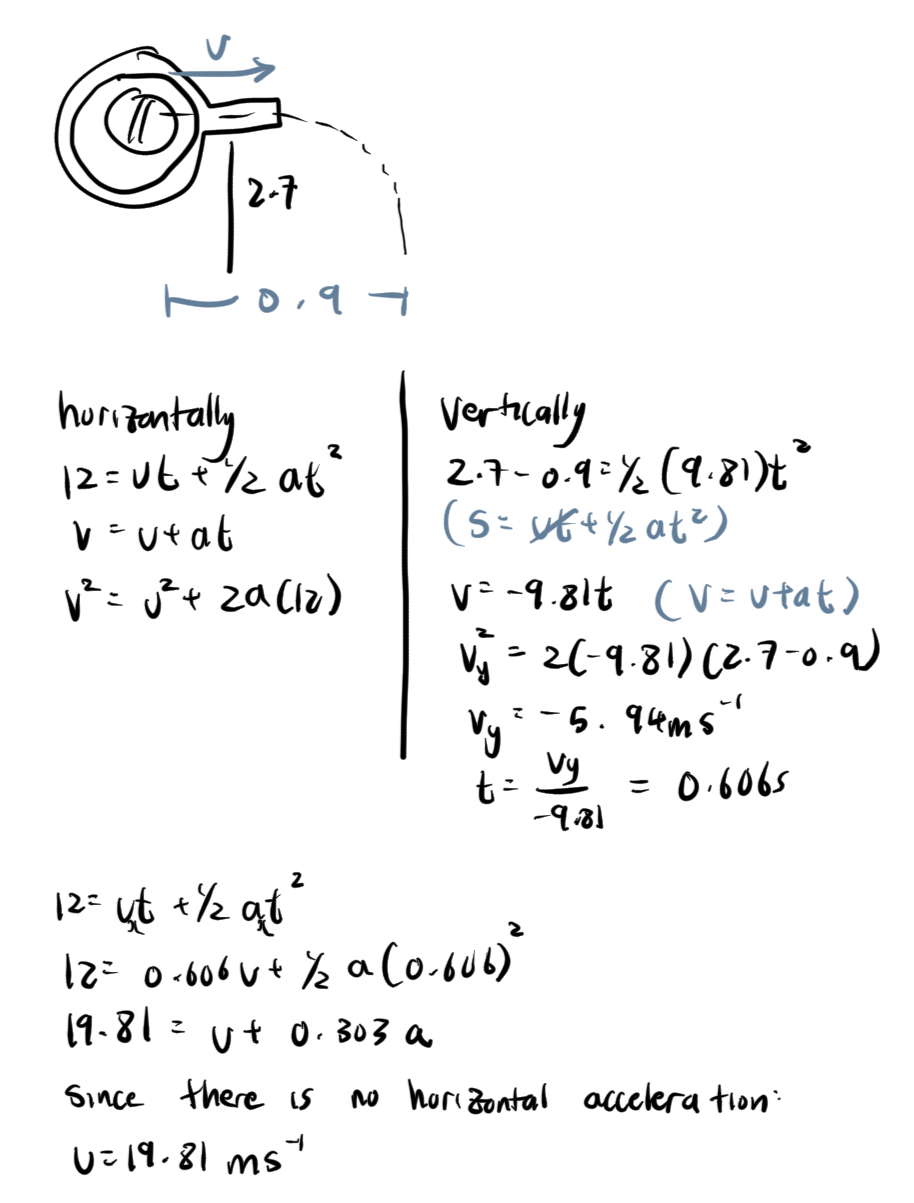 v
2.7
0.9
horizontally
12 = ut + 1/2 at²
v = u + at
v² = u² + 2a(12)
vertically
2.7 - 0.9 = 1/2 (9.81)t²
(s = ut + 1/2 at²)
v = -9.81t (v = u + at)
v_y² = 2(-9.81)(2.7 - 0.9)
v_y = -5.94ms⁻¹
t = v_y/-9.81 = 0.606s
12 = u_xt + 1/2 a_xt²
12 = 0.606u + 1/2 a(0.606)²
19.81 = u + 0.303a
Since there is no horizontal acceleration:
u = 19.81 ms⁻¹